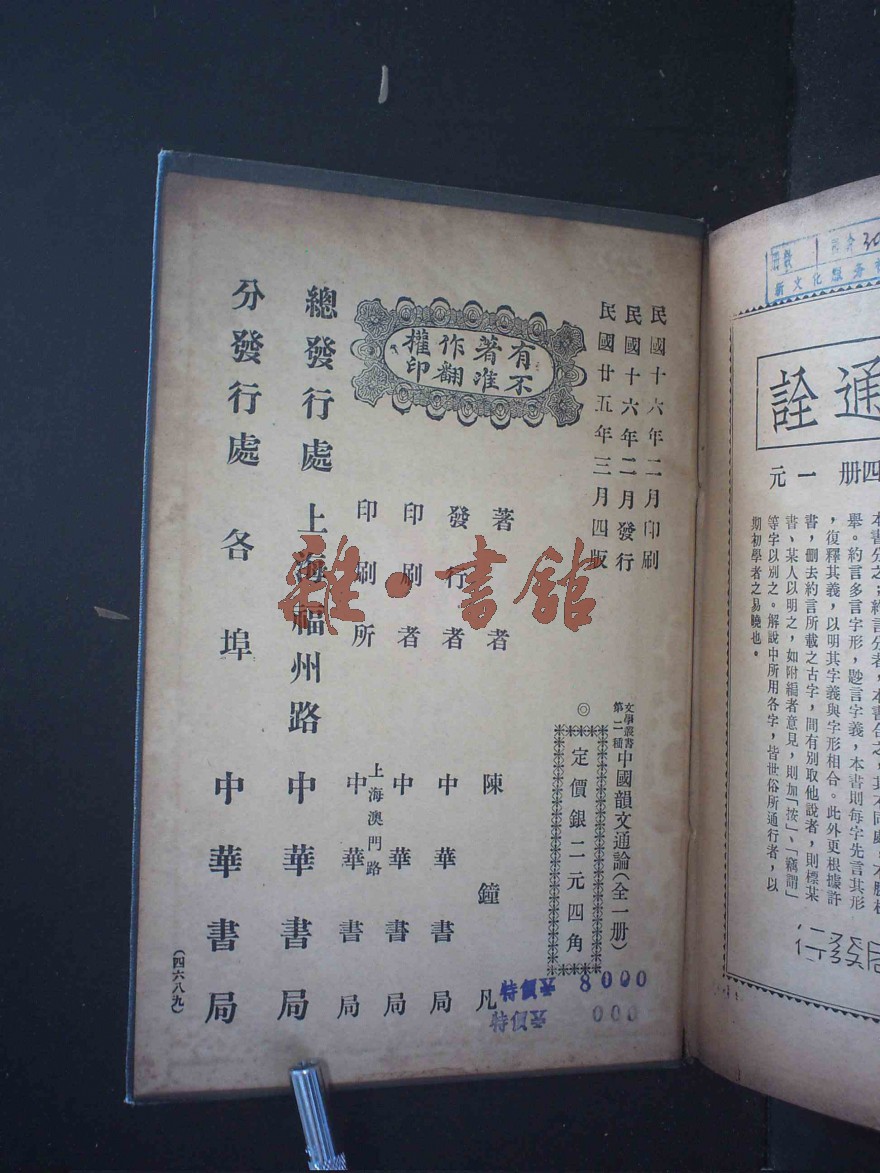 新文化服务
通詮
四册 一元
本書分之;約言分者,本書合之,其不同處,不勝枚
舉。約言多言字形,尟言字義,本書則每字先言其形
,復釋其義,以明其字義與字形相合。此外更根據許
書,刪去約言所載之古字,間有別取他說者,則標某
書、某人以明之,如附編者意見,則加「按」、「竊謂」
等字以別之。解說中所用各字,皆世俗所通行者,以
期初學者之易曉也。
局發行
民國十六年二月印刷
民國十六年二月發行
民國廿五年三月四版
文學叢書
第二種
中國韻文通論(全一册)
◎定價銀二元四角
有著作權
不准翻印
著者 陳鐘凡
發行者 中華書局
印刷者 中華書局
印刷所 上海澳門路 中華書局
總發行處 上海福州路 中華書局
分發行處 各埠 中華書局
(四六八九)
特價 8000
特價 000
雜·書館